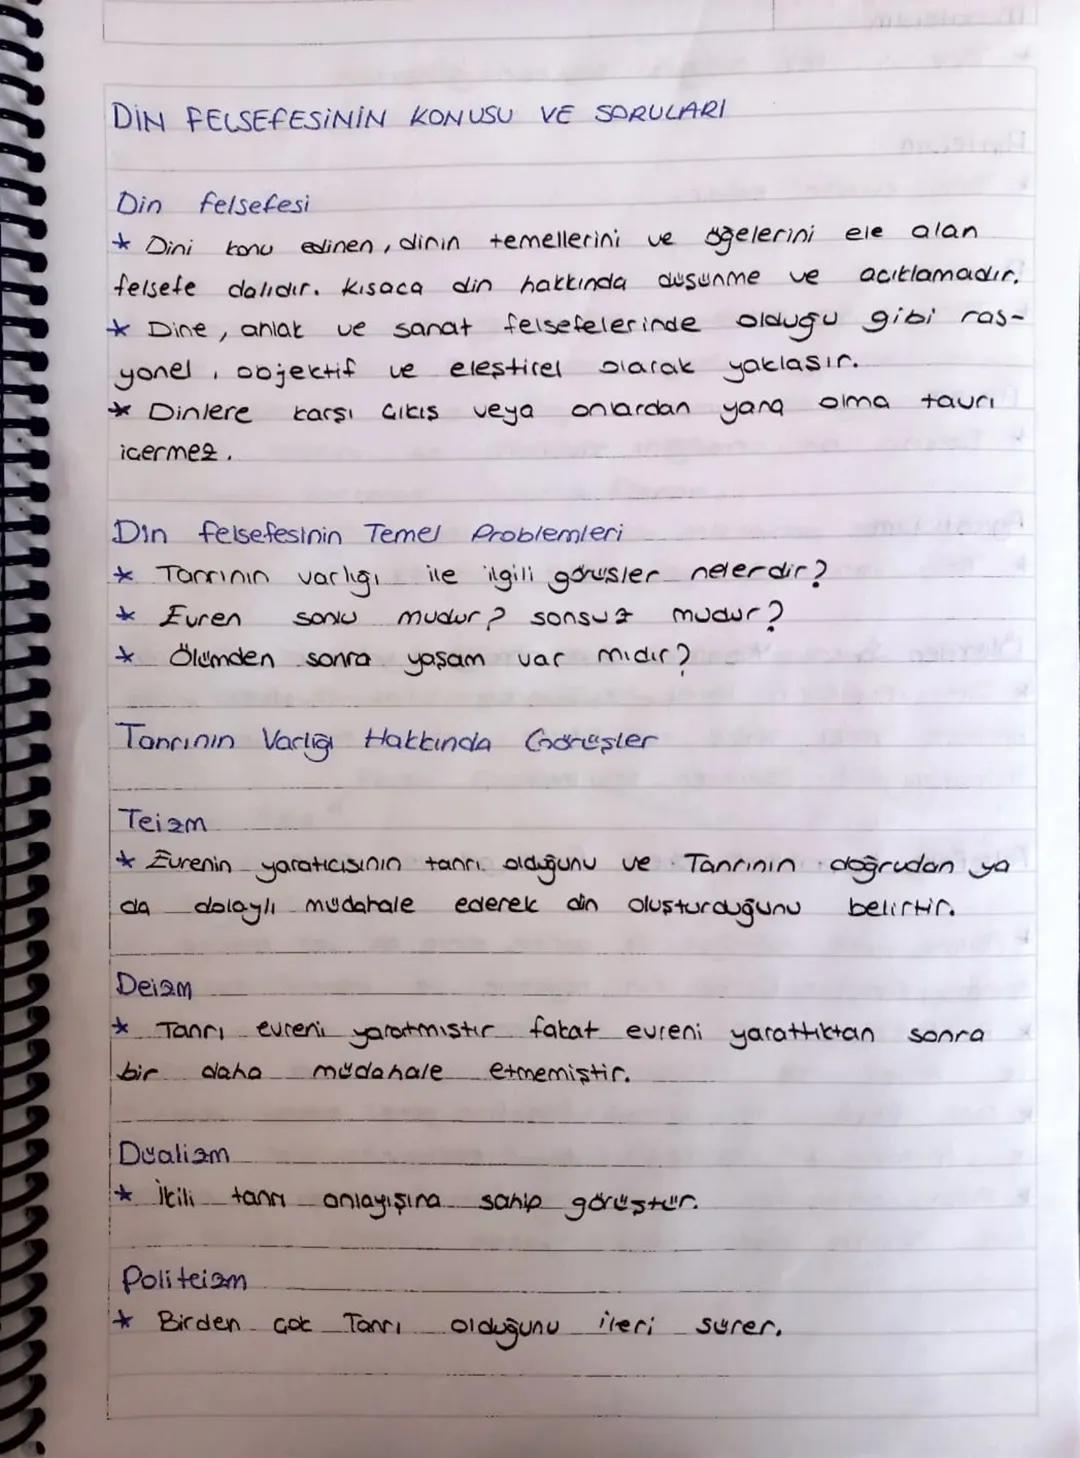 DİN FELSEFESİNİN KONUSU VE SORULARI
Din felsefesi
* Dini konu edinen, dinin temellerini ve öğelerini ele alan
felsefe dalıdır. Kısaca din hakkında düşünme ve açıklamadır.
* Dine, ahlak ve sanat felsefelerinde olduğu gibi ras-
yonel, objektif ve eleştirel olarak yaklaşır.
* Dinlere karşı çıkış veya onlardan yana olma tavrı
içermez.
Din felsefesinin Temel Problemleri
* Tanrının varlığı ile ilgili görüşler nelerdir?
* Evren sonlu mudur? sonsuz mudur?
* Ölümden sonra yaşam var mıdır?
Tanrının Varlığı Hakkında Görüşler
Teizm
* Evrenin yaratıcısının tanrı olduğunu ve Tanrının doğrudan ya
da dolaylı müdahale ederek din oluşturduğunu belirtir.
Deizm
* Tanrı evreni yaratmıştır fakat evreni yarattıktan sonra
bir daha müdahale etmemiştir.
Düalizm
* İkili tanrı anlayışına sahip görüştür.
Politeizm
* Birden çok Tanrı olduğunu ileri sürer.